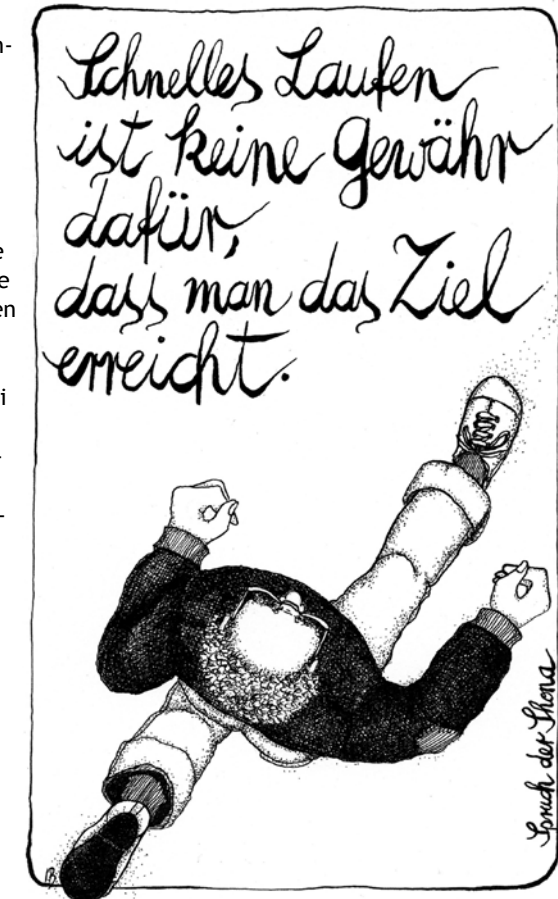 n-
e
e
en
i
-
-
Schnelles Laufen
ist keine Gewähr
dafür,
dass man das Ziel
erreicht.
Spruch der Shona